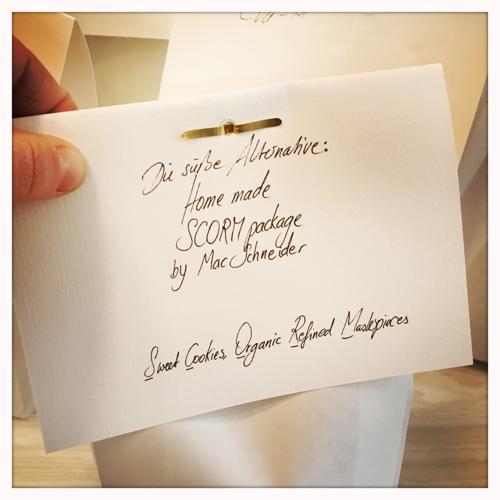 Die süße Alternative:
Home made
SCORM package
by MacSchneider
Sweet Cookies, Organic Refined Masterpieces